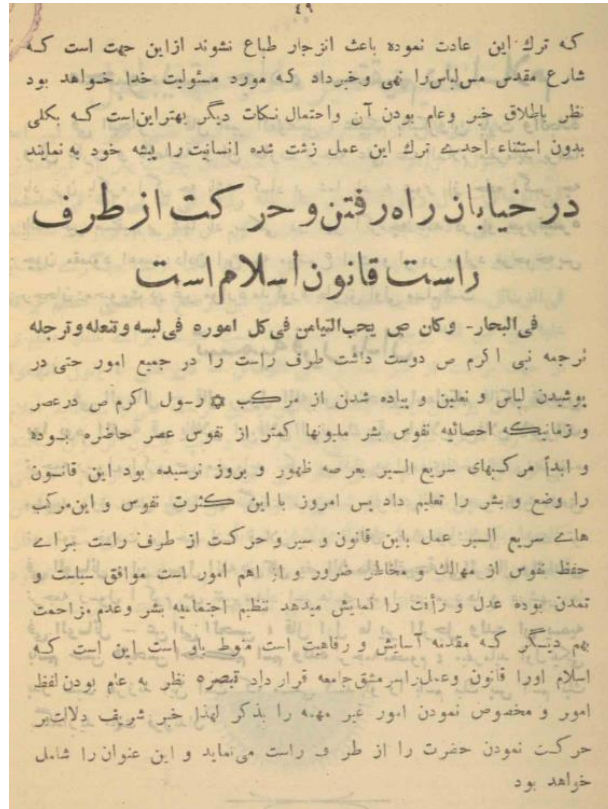 ٤٩
که ترك این عادت نموده باعث انزجار طباع نشوند ازاین جهت است که
شارع مقدس مس‌لباس‌را نهی وخبرداد که مورد مسئولیت خدا خواهد بود
نظر باطلاق خبر وعام بودن آن واحتمال نکات دیگر بهتراین‌است که بکلی
بدون استثناء احدے ترك این عمل زشت شده انسانیت را پیشه خود به نمایند
در خیابان راه رفتن و حرکت از طرف
راست قانون اسلام است
فی‌البحار- وکان ص یحب‌التیامن فی‌کل اموره فی‌لبسه وتنعله وترجله
ترجمه نبی اکرم ص دوست داشت طرف راست را در جمیع امور حتی در
پوشیدن لباس و نعلین و پیاده شدن از مرکب ✡ رسول اکرم ص درعصر
و زمانیکه احصائیه نفوس بشر ملیونها کمتر از نفوس عصر حاضره بوده
و ابداً مرکبهای سریع السیر بعرصه ظهور و بروز نرسیده بود این قانون
را وضع و بشر را تعلیم داد پس امروز با این کثرت نفوس و این‌مرکب
هاے سریع السیر عمل باین قانون و سیر و حرکت از طرف راست براے
حفظ نفوس از مهالك و مخاطر ضرور و از اهم امور است موافق سیاست و
تمدن بوده عدل و رأفت را نمایش میدهد تنظیم اجتماعیه بشر وعدم مزاحمت
بهم دیگر که مقدمه آسایش و رفاهیت است منوط باو است این است که
اسلام اورا قانون وعمل‌راسرمشق‌جامعه قرار داد تبصره نظر به عام بودن لفظ
امور و مخصوص نمودن امور غیر مهمه را بذکر لهذا خبر شریف دلالت‌بر
حرکت نمودن حضرت را از طر ف راست می‌نماید و این عنوان را شامل
خواهد بود